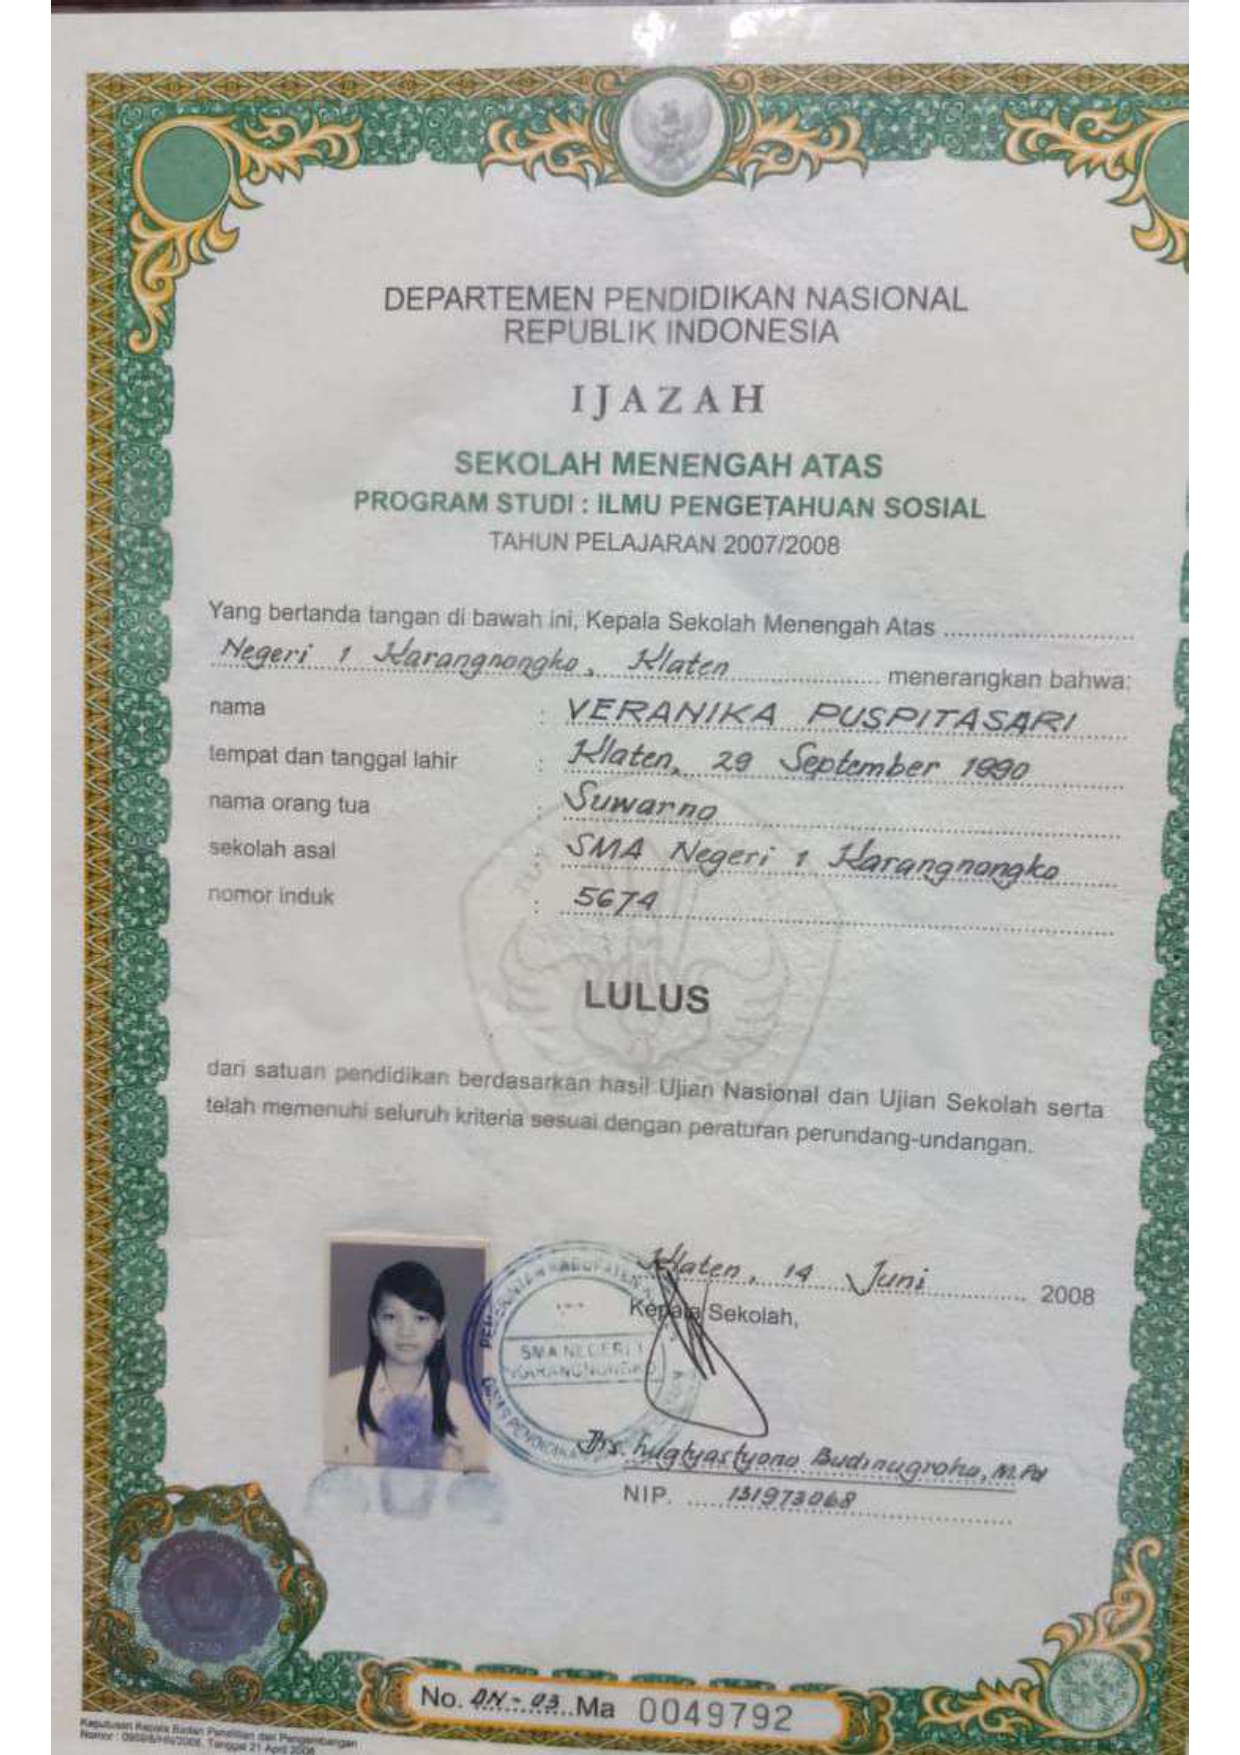 DEPARTEMEN PENDIDIKAN NASIONAL
REPUBLIK INDONESIA
IJAZAH
SEKOLAH MENENGAH ATAS
PROGRAM STUDI : ILMU PENGETAHUAN SOSIAL
TAHUN PELAJARAN 2007/2008
Yang bertanda tangan di bawah ini, Kepala Sekolah Menengah Atas
Negeri 1 Karangnongko, Klaten menerangkan bahwa:
nama : VERANIKA PUSPITASARI
tempat dan tanggal lahir : Klaten, 29 September 1990
nama orang tua : Suwarno
sekolah asal : SMA Negeri 1 Karangnongko
nomor induk : 5674
LULUS
dari satuan pendidikan berdasarkan hasil Ujian Nasional dan Ujian Sekolah serta
telah memenuhi seluruh kriteria sesuai dengan peraturan perundang-undangan.
Klaten, 14 Juni 2008
Kepala Sekolah,
SMA NEGERI 1
KARANGNONGKO
Drs. Budinugroho, M.Pd
NIP. 131973068
No. DN - 03 Ma 0049792
Keputusan Kepala Badan Penelitian dan Pengembangan
Nomor : Tanggal 21 April 2008